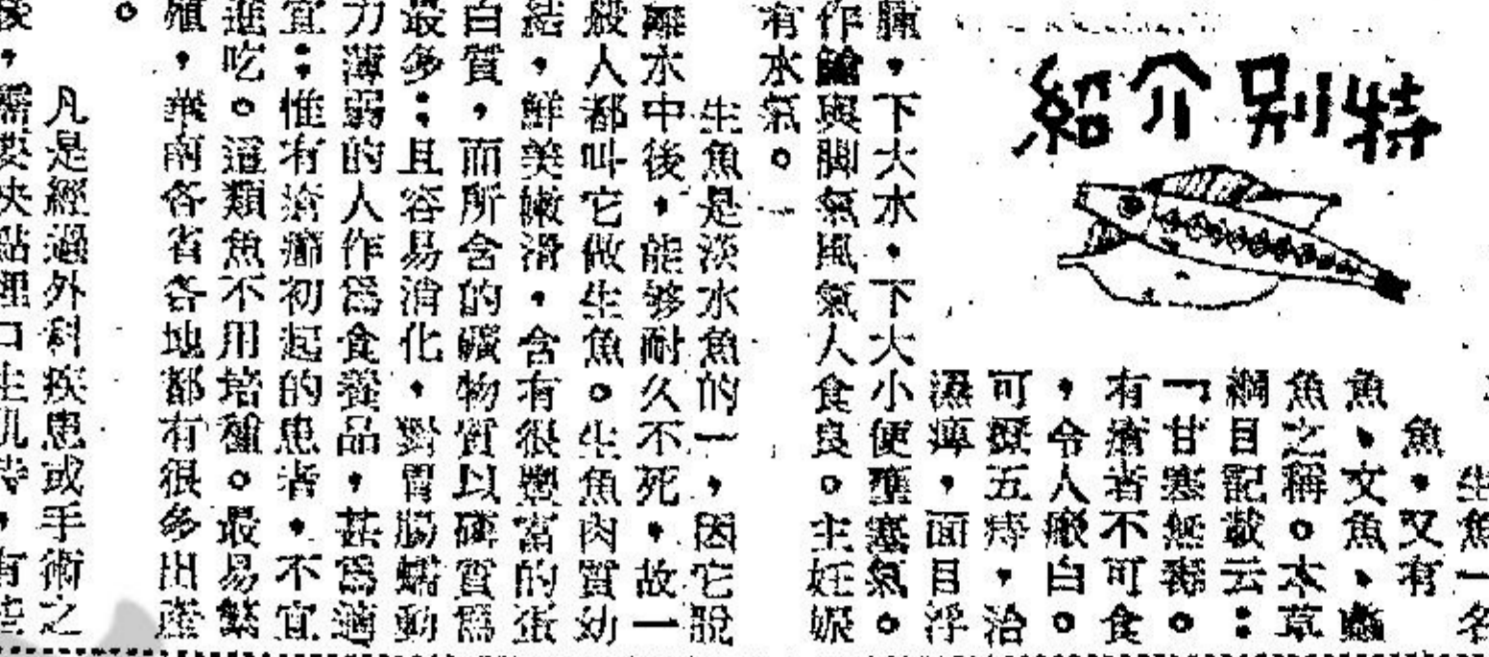 特別介紹
生魚一名
魚，又有
魚、文魚、蠡
魚之稱。本草
綱目記載云：
「甘寒無毒。
有瘡者不可食
，令人瘢白。
可療五痔，治
濕痺，面目浮
腫，下大水。下大小便壅塞氣。
作鱠與脚氣風氣人食良。主妊娠
有水氣。
生魚是淡水魚的一，因它脫
離水中後，能够耐久不死，故一
般人都叫它做生魚。生魚肉質幼
結，鮮美嫩滑，含有很豐富的蛋
白質，而所含的礦物質以磷質為
最多；且容易消化，對胃腸蠕動
力薄弱的人作爲食養品，甚爲適
宜；惟有瘡癤初起的患者，不宜
進吃。這類魚不用培種。最易繁
殖，華南各省各地都有很多出產
。
凡是經過外科疾患或手術之
後，需要快點埋口生肌時，有些